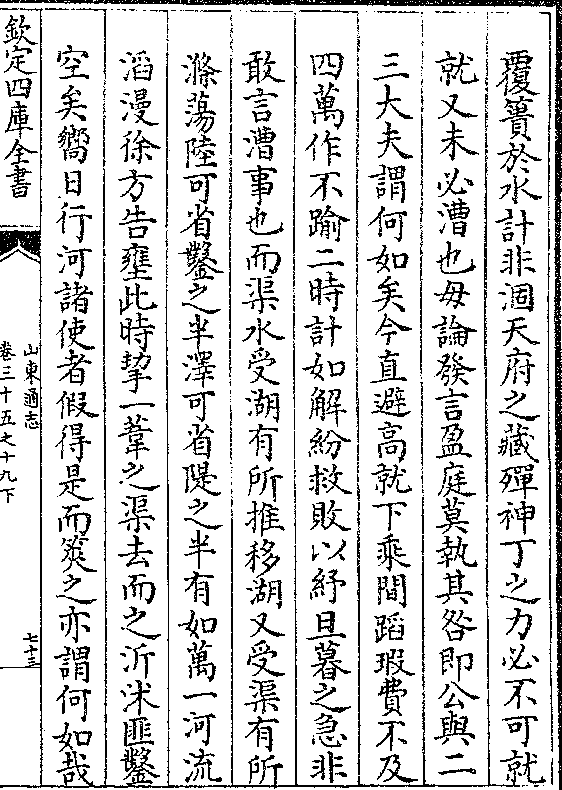 覆簣於水計非涸天府之藏殫神丁之力必不可就
就又未必漕也毋論發言盈庭莫執其咎即公與二
三大夫謂何如矣今直避高就下乘間蹈瑕費不及
四萬作不踰二時計如解紛救敗以紓旦暮之急非
敢言漕事也而渠水受湖有所推移湖又受渠有所
滌蕩陸可省鑿之半澤可省隄之半有如萬一河流
滔漫徐方告壅此時挈一葦之渠去而之沂沭匪鑿
空矣嚮日行河諸使者假得是而筴之亦謂何如哉
欽定四庫全書
山東通志
卷三十五之十九下
七十三